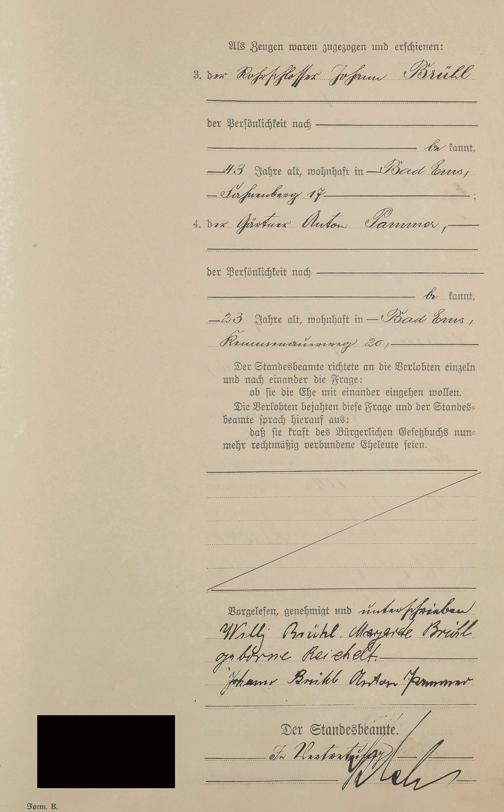 Als Zeugen waren zugezogen und erschienen:
3. der Rohrschlosser Johann Brühl
der Persönlichkeit nach
be kannt,
43 Jahre alt, wohnhaft in Bad Ems,
17
4. der Gärtner Anton Pammer,
der Persönlichkeit nach
be kannt,
23 Jahre alt, wohnhaft in Bad Ems,
20,
Der Standesbeamte richtete an die Verlobten einzeln
und nach einander die Frage:
ob sie die Ehe mit einander eingehen wollen.
Die Verlobten bejahten diese Frage und der Standes=
beamte sprach hierauf aus:
daß sie kraft des Bürgerlichen Gesetzbuchs nun=
mehr rechtmäßig verbundene Eheleute seien.
Vorgelesen, genehmigt und unterschrieben
Willy Brühl Margarete Brühl
geborne Reichelt.
Johann Brühl Anton Pammer
Der Standesbeamte.
In Vertretung
Form. B.